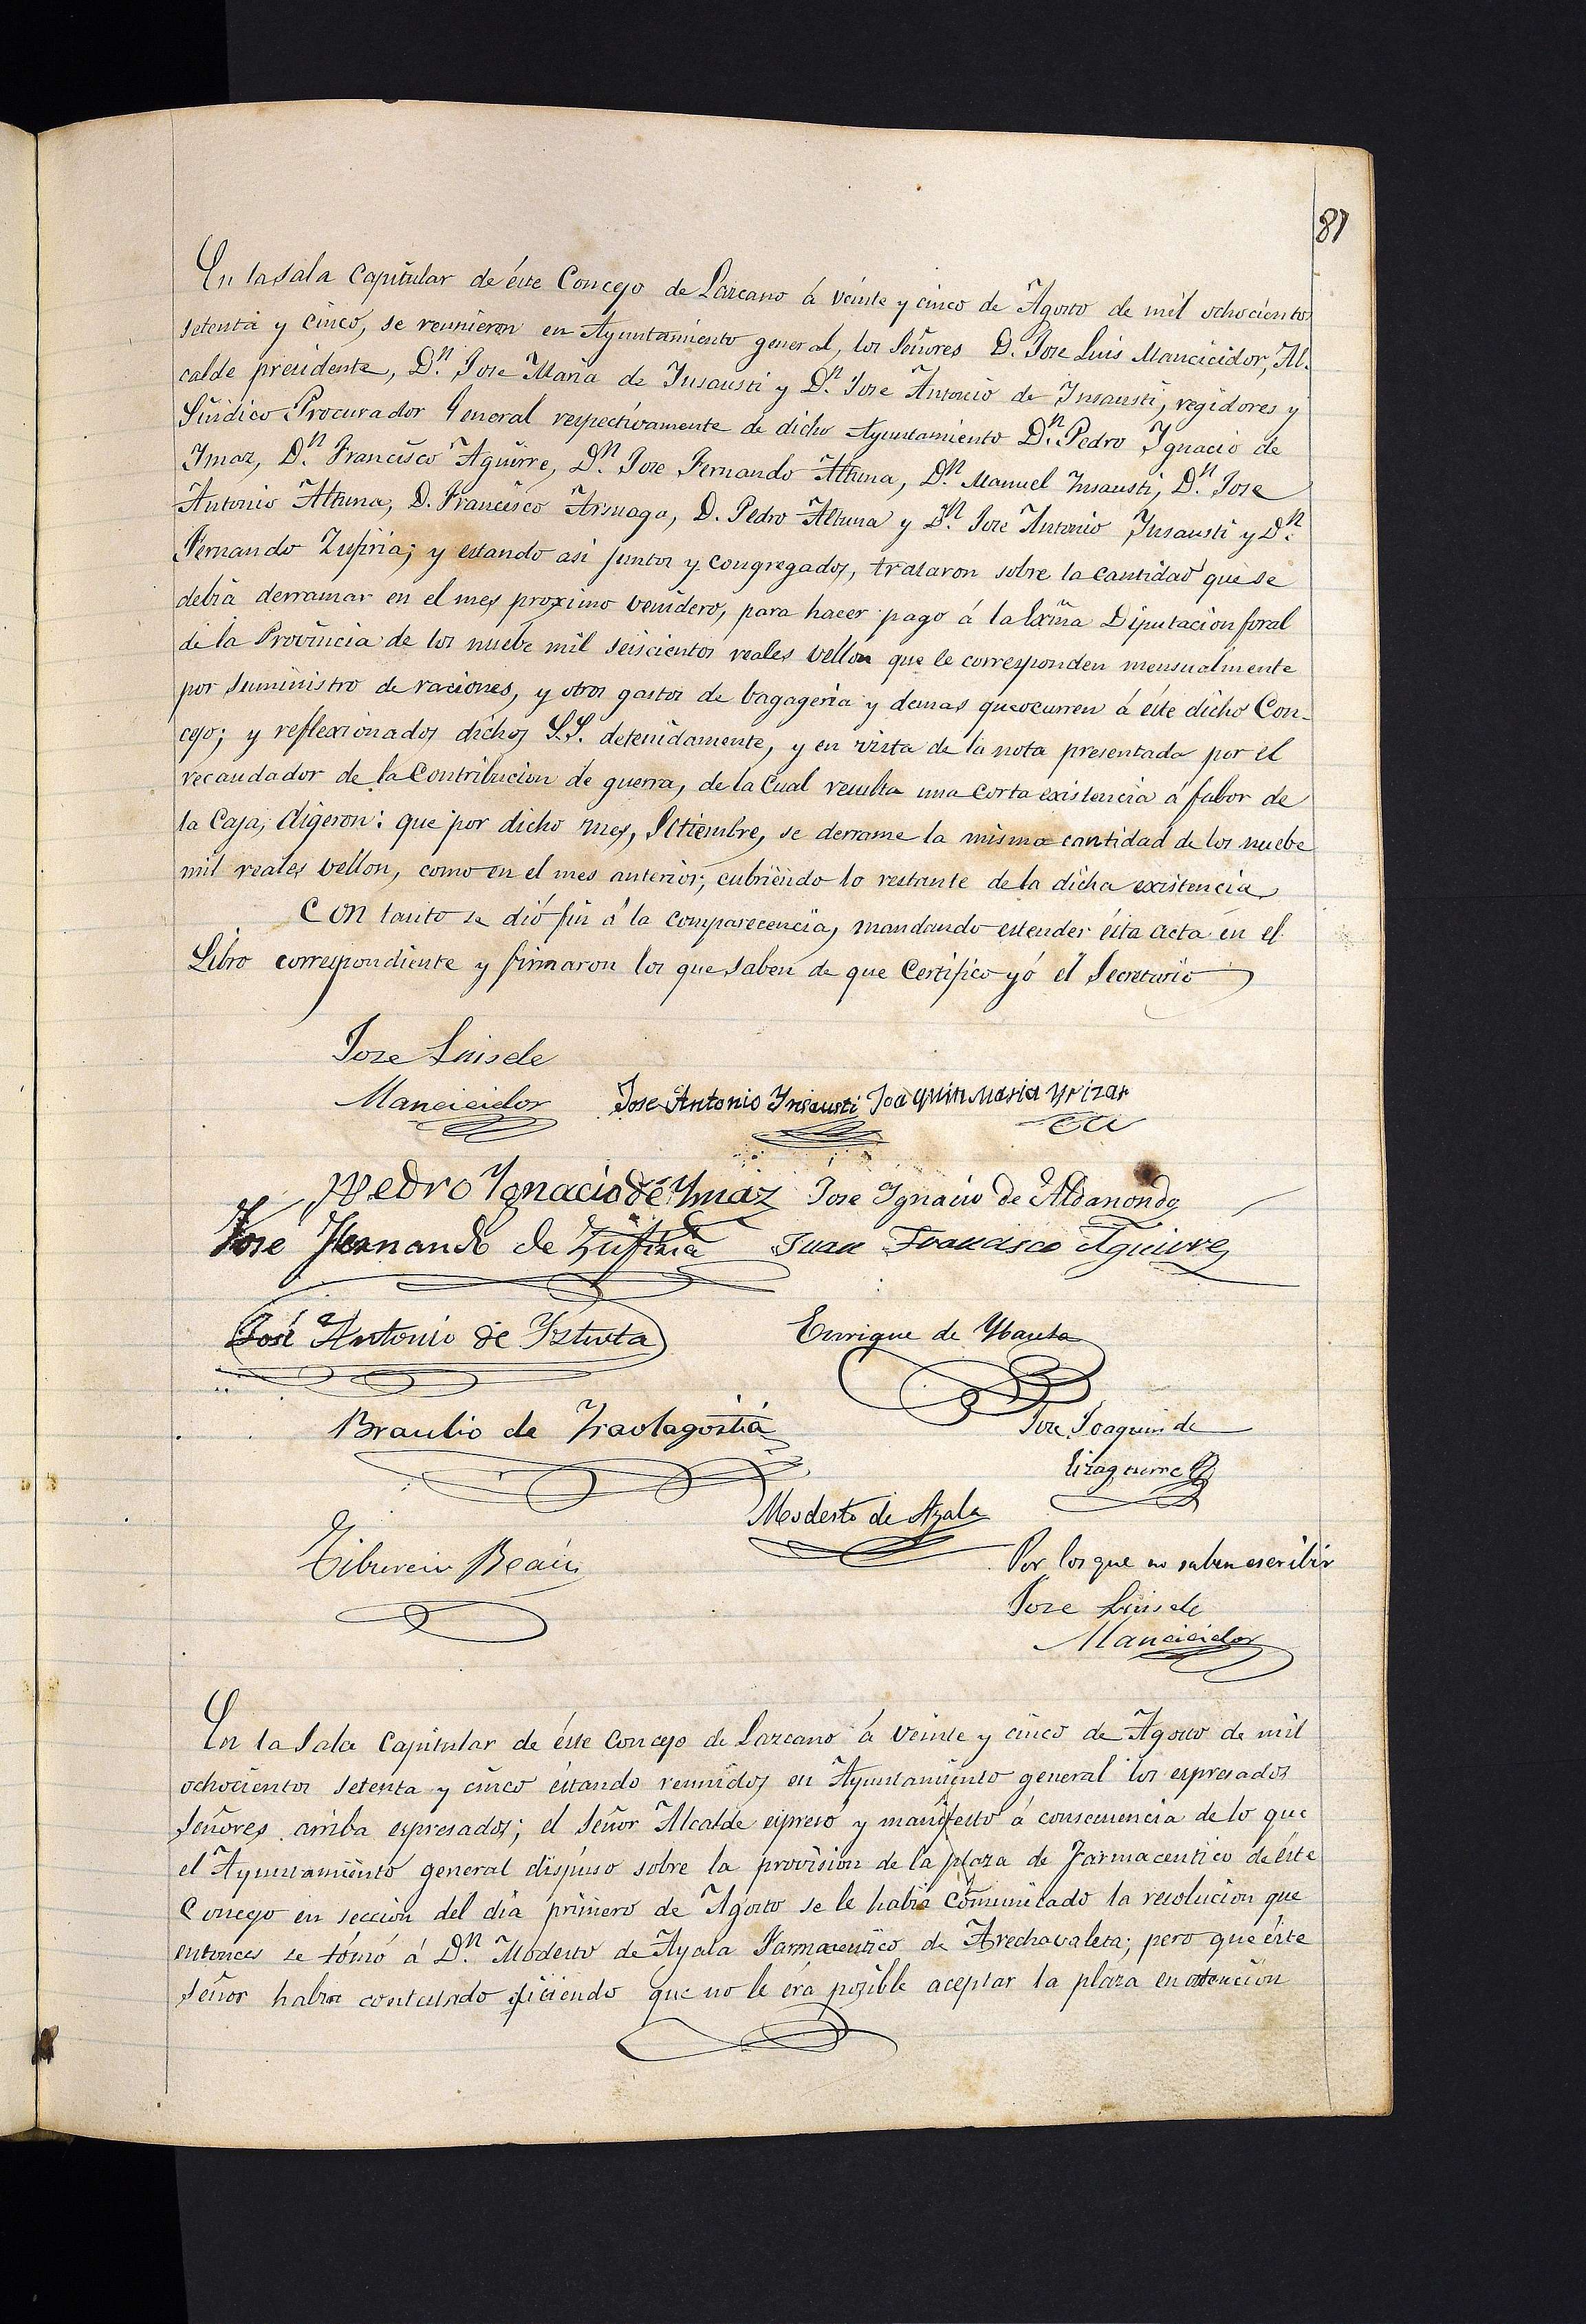 81
En la Sala Capitular de éste Concejo de Lazcano á veinte y cinco de Agosto de mil ochocientos
setenta y cinco, se reunieron en Ayuntamiento general, los Señores D. Jose Luis Mancicidor, Al-
calde presidente, D.n Jose Maria de Insausti y D.n Jose Antonio de Insausti, regidores y
Sindico Procurador General respectivamente de dicho Ayuntamiento D.n Pedro Ygnacio de
Ymaz, D.n Francisco Aguirre, D.n Jose Fernando Altuna, D.n Manuel Insausti, D.n Jose
Antonio Altuna, D. Francisco Arsuaga, D. Pedro Altuna y D.n Jose Antonio Insausti y D.n
Fernando Zufiria; y estando asi juntos y congregados, trataron sobre la cantidad que se
debia derramar en el mes proximo venidero, para hacer pago á la Exma Diputacion foral
de la Provincia de los nuebe mil seiscientos reales vellon que le corresponden mensualmente
por suministro de raciones, y otros gastos de bagageria y demas que ocurren á éste dicho Con-
cejo; y reflexionados dichos S.S. detenidamente, y en vista de la nota presentada por el
recaudador de la Contribucion de guerra, de la cual resulta una corta existencia á fabor de
la Caja, digeron: que por dicho mes, Setiembre, se derrame la misma cantidad de los nuebe
mil reales vellon, como en el mes anterior; cubriendo lo restante de la dicha existencia
Con tanto se dió fin á la comparecencia, mandando estender ésta acta en el
Libro correspondiente y firmaron los que saben de que Certifico yó el Secretario
Jose Luis de
Mancicidor
Jose Antonio Ynsausti Joaquin Maria Yrizar
Pedro Ygnacio de Ymaz Jose Ygnacio de Aldanondo
Jose Fernando de Zufiria Juan Francisco Aguirre
José Antonio de Yztueta Enrique de
Braulio de Jose Joaquin de
Lizaguirre
Modesto de Ayala
Tiburcio
Por los que no saben escribir
Jose Luis de
Mancicidor
En la Sala Capitular de éste Concejo de Lazcano á veinte y cinco de Agosto de mil
ochocientos setenta y cinco éstando reunidos en Ayuntamiento general los espresados
Señores arriba espresados; el Señor Alcalde espresó y manifestó á consecuencia de lo que
el Ayuntamiento general dispuso sobre la provision de la plaza de Farmaceutico de éste
Concejo en seccion del dia primero de Agosto se le habia comunicado la resolucion que
entonces se tómó á D.n Modesto de Ayala Farmaceutico de Arechavaleta; pero que éste
Señor habia contestado diciendo que no le éra posible aceptar la plaza en atencion